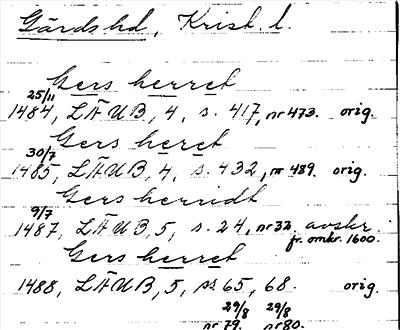 Gärds hd, Krist. l.
Gers herret
25/11
1484, LÄUB, 4, s. 417, nr 473. orig.
Gers heret
30/7
1485, LÄUB, 4, s. 432, nr 489. orig.
Gers herridt
9/7
1487, LÄUB, 5, s. 24, nr 32. avskr.
fr. omkr. 1600.
Gers herret
1488, LÄUB, 5, ss 65, 68. orig.
29/8 29/8
nr 79. nr 80.